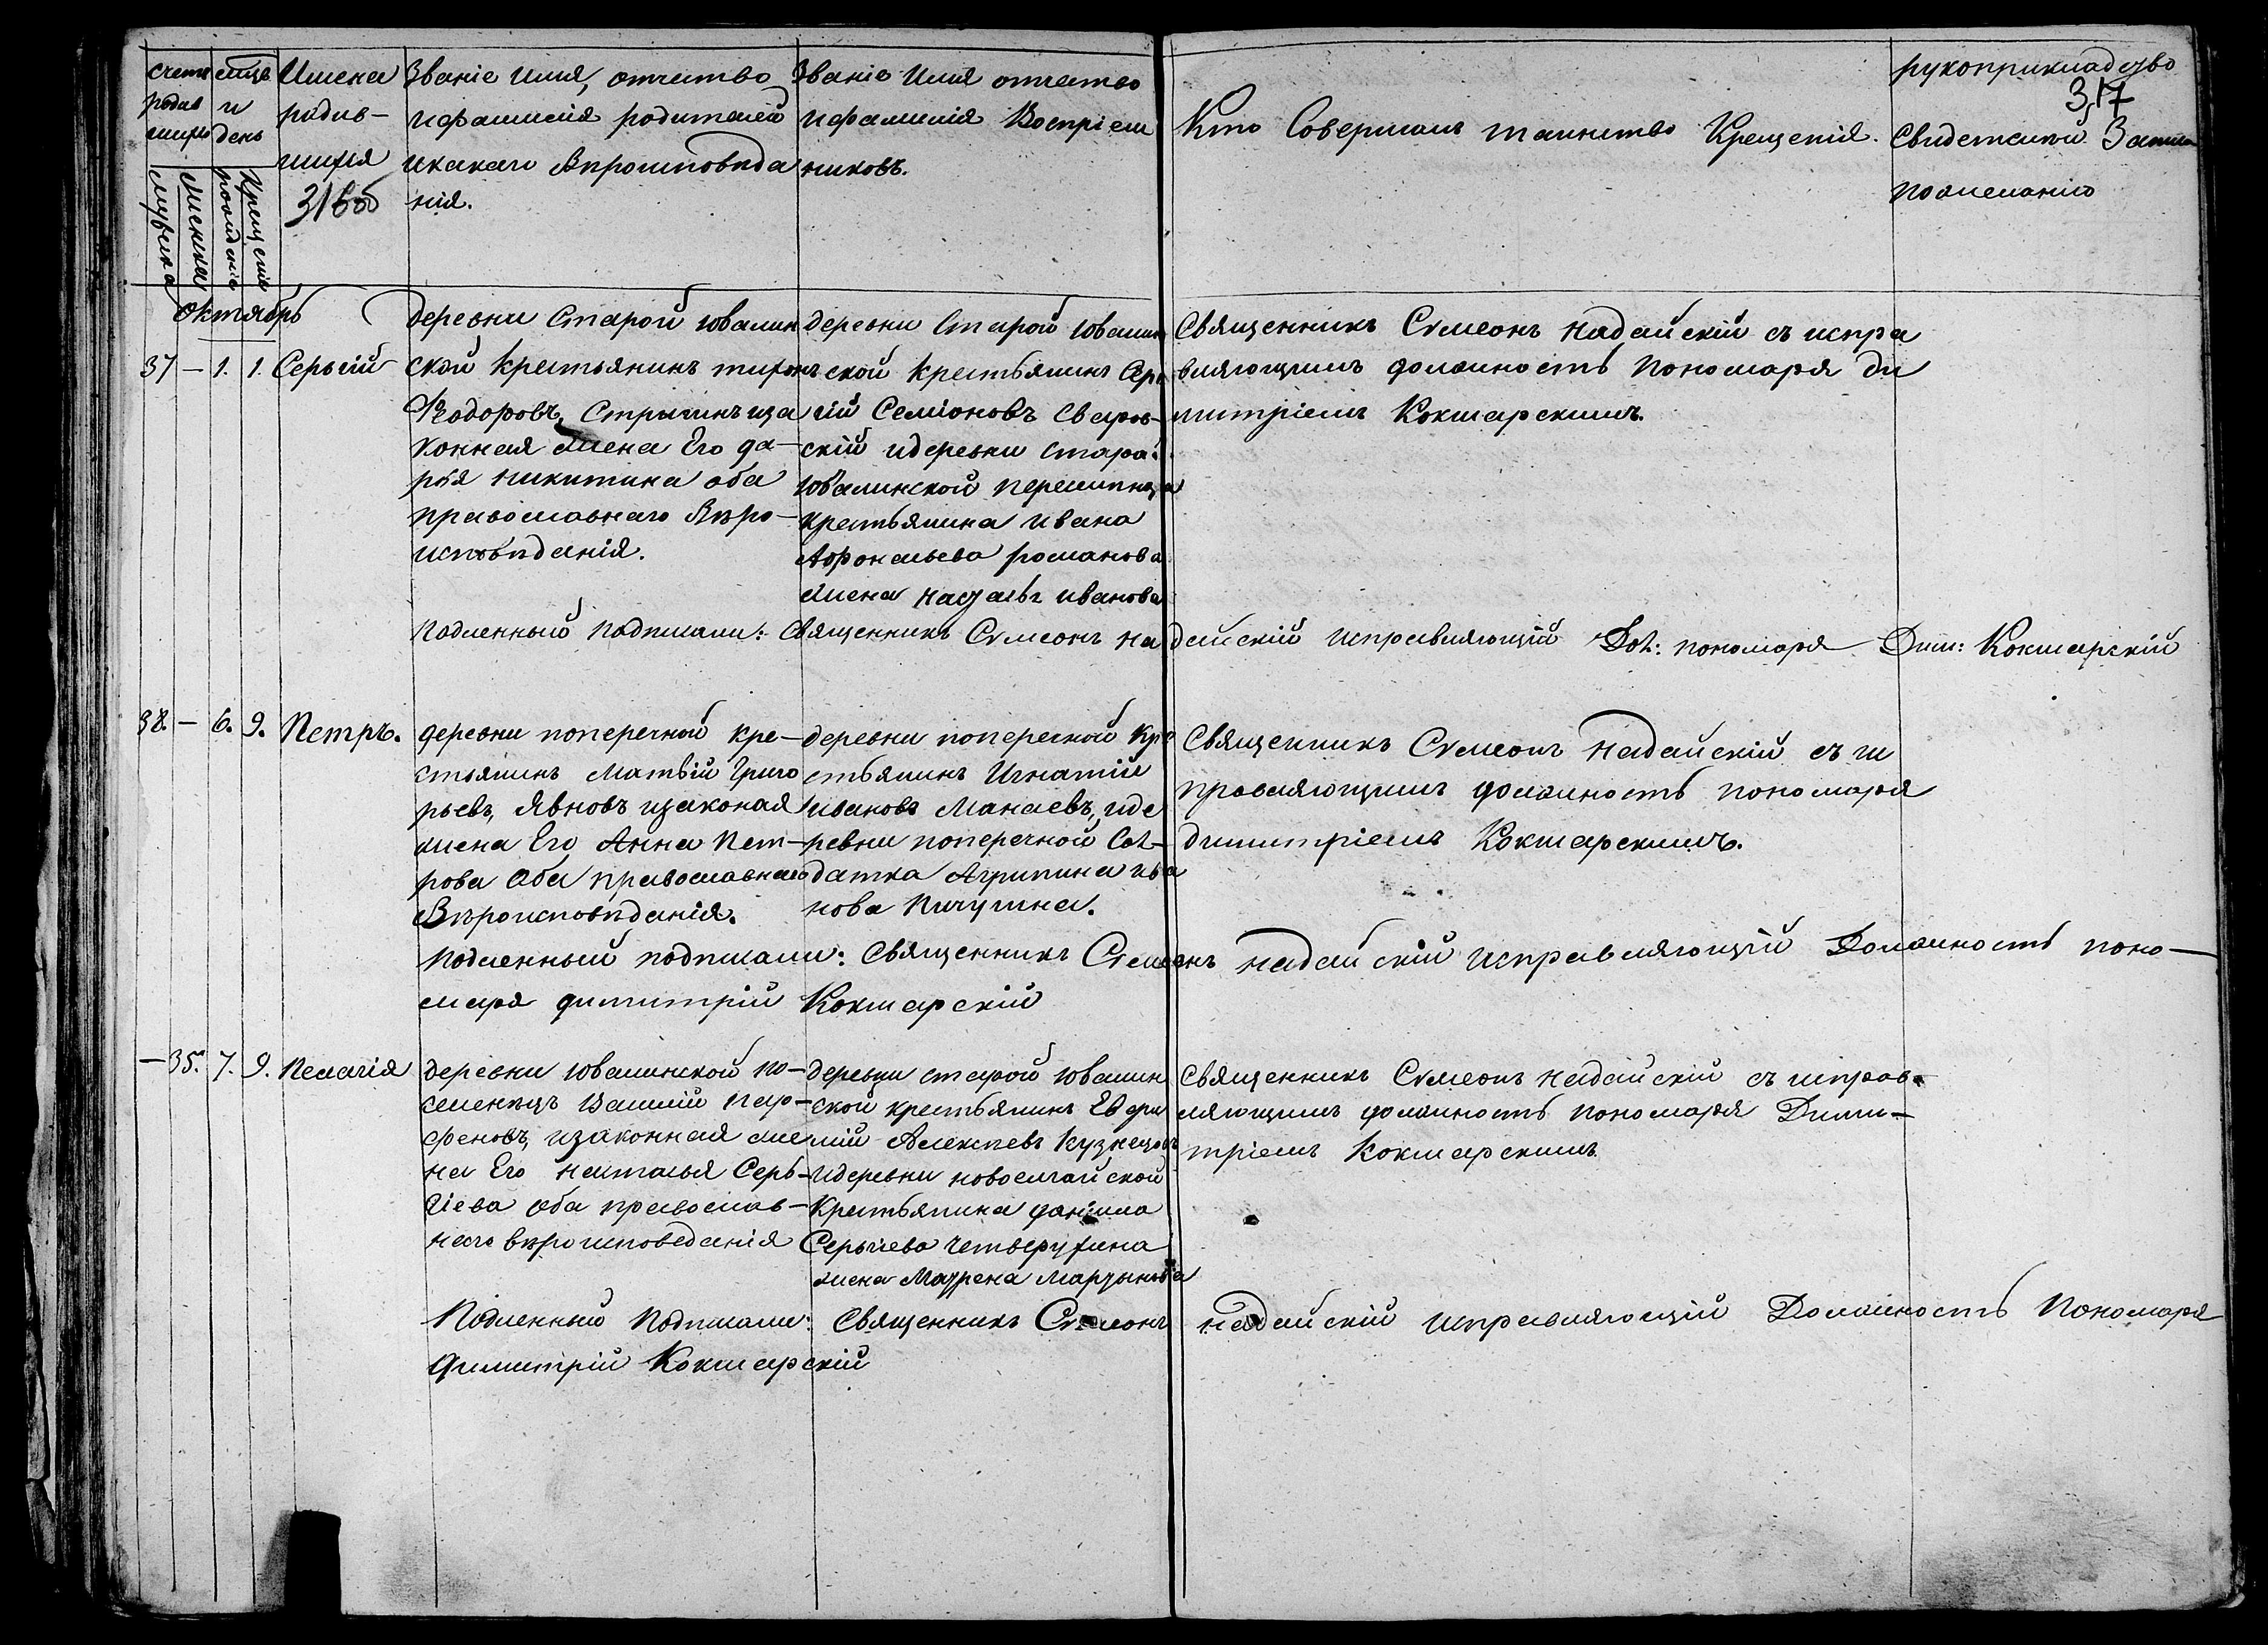 счетъ
родив
шихся
мужеска
женска
мцъ
и
день
рожденія
крещенія
Имена
родив-
шихся
316об
Званіе имя, отчество
ифамилія родителей
икакаго Вѣроисповѣда
нія.
Званіе Имя отчество
ифамилія Воспріем
никовъ.
Кто Совершалъ таинство Крещенія.
рукоприкладство
317
Свидетелей Записи
пожеланію
Октябрь
37 — 1. 1. Сергій
деревни Старой ювалин
ской крестьянинъ тихонъ
Ѳеодоровъ, Стрыгинъ иза
конная жена Его да-
рья никитина оба
православнаго Вѣро-
исповѣданія.
деревни Старой ювалин
ской крестьянинъ Сер
гій Семіоновъ Сваров-
скій идеревни старо
ювалинской
крестьянина ивана
Афонасьева романова
жена ивановa
Священникъ Сѵмеонъ надайскій съ испра
вляющимъ должность пономаря Ди
митріемъ Кокшарскимъ.
Подленный подписали: Священникъ Сѵмеонъ надайскій исправляющій Дол: пономаря Дим: Кокшарскій
38. — 6. 9. Петръ.
деревни поперечной кре-
стьянинъ Матвій Григо
рьевъ, Явновъ изаконая
жена Его Анна Пет-
рова Оба православнаго
Вѣроисповѣданія.
деревни поперечной Кре
стьянинъ Игнатій
ивановъ Манаевъ, иде
ревни поперечной Сол-
датка Агрипина ива
нова Пичугина.
Священникъ Сѵмеонъ надайскій съ ис
правляющимъ должность пономаря
димитріемъ Кокшарскимъ.
подленный подписали: Священникъ Сѵмеонъ надайскій исправляющій Должность поно-
маря димитрій Кокшарскій
— 35. 7. 9. Пелагія
деревни ювалинской по-
селенецъ Василій пар-
феновъ, изаконная же
на Его наталья Серь-
гіева оба православ-
наго вѣроисповеданія
деревни старой ювалин
ской крестьянинъ Евфи
мій Алексѣевъ Кузнецовъ
идеревни
Крестьянина данила
Серьгіева Четверухина
жена Маурена Мартынова
Священникъ Сѵмеонъ надайскій съ исправ-
ляющимъ должность пономаря Дими-
тріемъ Кокшарскимъ
Подленный Подписали: Священникъ Сѵмеонъ надайскій исправляющій Должность Пономаря
Димитрій Кокшарскій